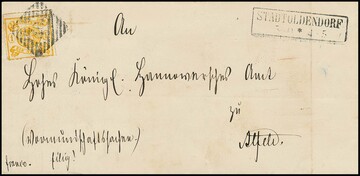 STADTOLDENDORF
An
Hohes Königl. Hannoversches Amt
zu
Alfeld.
(Vormundschaftssachen.)
franco. Eilig!